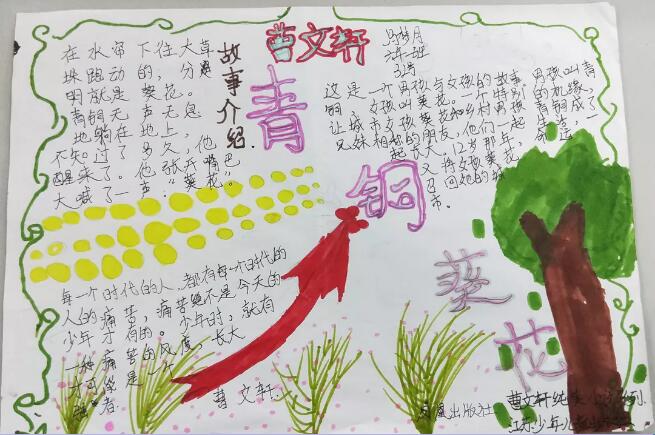 曹文轩
青
铜
葵
花
故事介绍
在水帘下往大草
珠跑动的，分
明就是葵花。
青铜无声无息
地躺在地上，
不知过了多久，他
醒来了。他张开嘴巴
大喊了一声：“葵花”
六年二班
这是一个男孩与女孩的故事。男孩叫青
铜，女孩叫葵花。一个特别的机缘，
让城市女孩葵花和乡村男孩青铜成了
兄妹相称的朋友，他们一起生活，一
起长大。12岁那年，命运
又将女孩葵花
召回她的城
市。
每一个时代的人，都有每一个时代的
人的痛苦，痛苦绝不是今天的
少年才有的。少年时，就有
一种痛苦的风度，长大
才可能是一个
者
曹文轩
出版社
曹文轩纯美小说系列
江苏少年儿童出